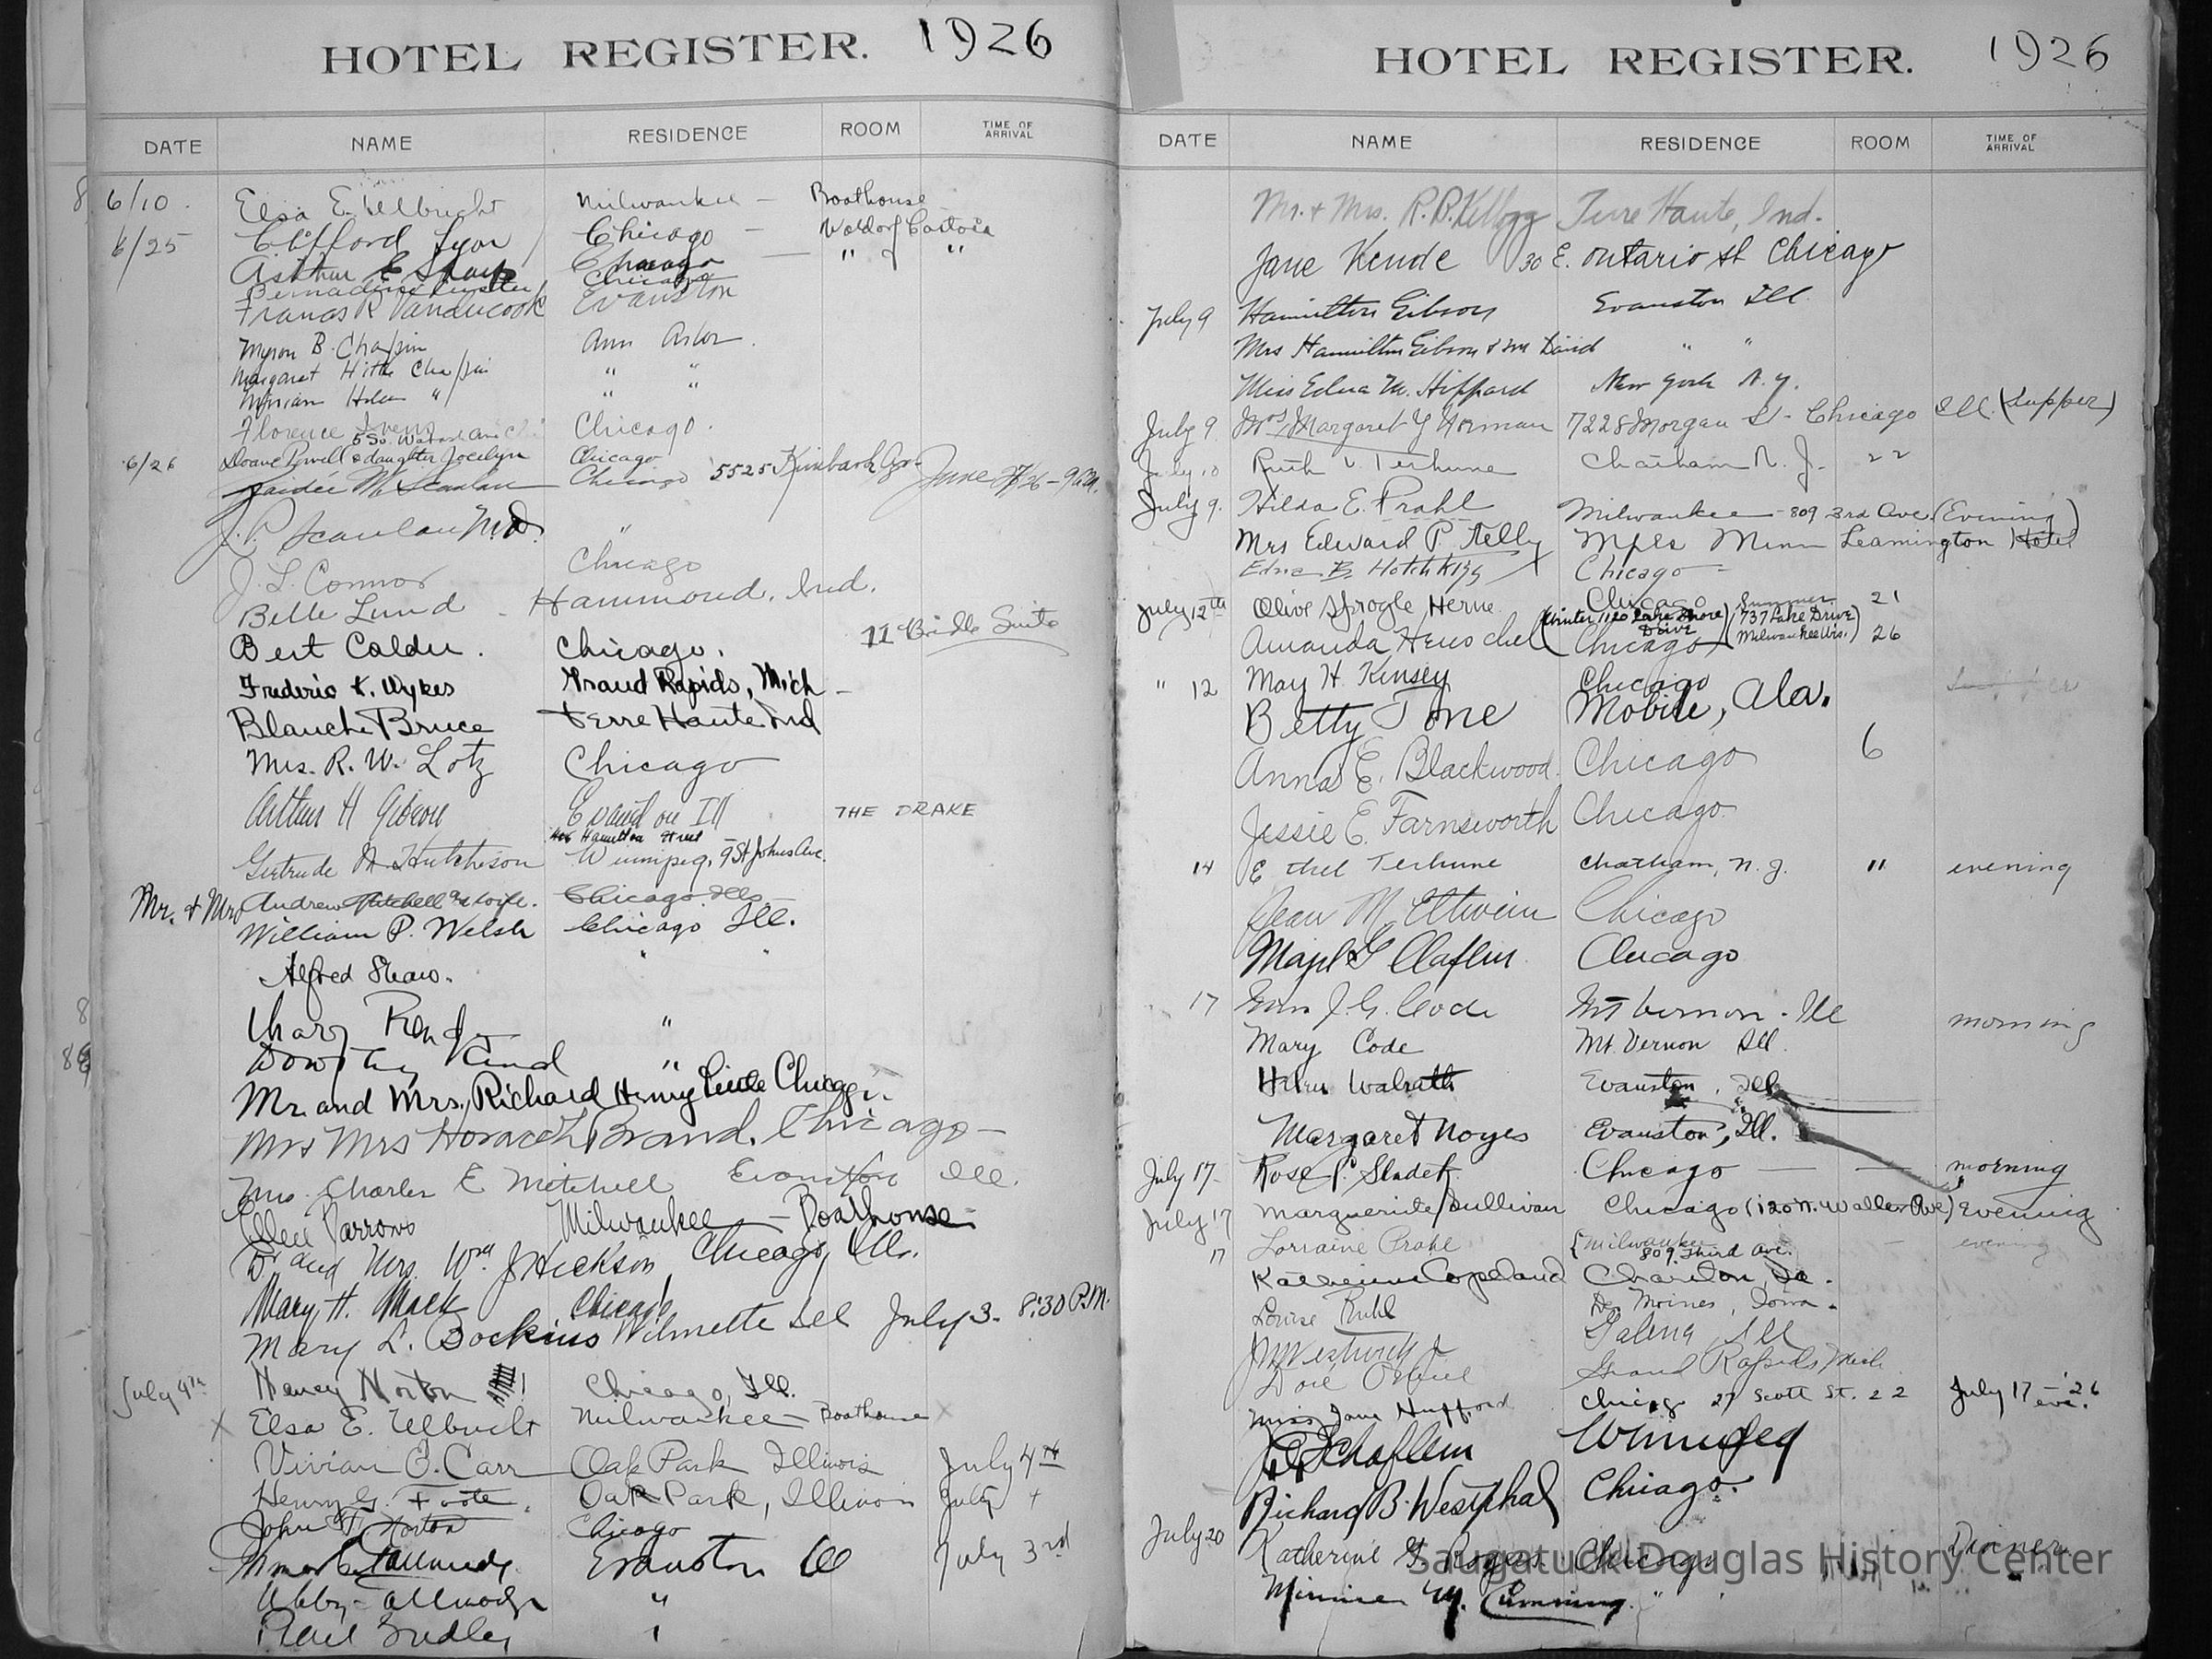 HOTEL REGISTER. 1926
DATE NAME RESIDENCE ROOM TIME OF ARRIVAL
6/10 Elsa E. Ulbricht Milwaukee — Boathouse
6/25 Clifford Lyon Chicago —
Arthur Chicago " "
Chicago
Francis R Vandercook Evanston
Myron B. Chapin Ann Arbor.
Margaret Chapin " "
Miriam Helen " "
Florence Chicago.
6/26 Doane Powell & daughter Jocelyn Chicago
Haidee M. Scanlan Chicago 5525 Kimbark Av. June 9 A.M.
J. P. Scanlan M.D. "
J. L. Connor Chicago
Belle Lund - Hammond, Ind.
Bert Calder. Chicago. 11 Bridle Suite
Frederic K. Wykes Grand Rapids, Mich —
Blanche Bruce Terre Haute Ind
Mrs. R. W. Lotz Chicago
Arthur H Gibson Evanston Ill THE DRAKE
Hamilton Street
Gertrude M Hutchison Winnipeg, 9 St Johns Ave.
Mr. & Mrs Andrew Mitchell & wife. Chicago Ills
William P. Welsh Chicago Ill.
Alfred Shaw. " "
"
Dorothy "
Mr. and Mrs. Richard Henry Little Chicago.
Mr & Mrs Horace L Brand. Chicago —
Mrs. Charles E Mitchell Evanston Ill.
Ellen Barrows Milwaukee — Boathouse
Dr and Mrs. Wm J Hickson Chicago, Ills.
Mary H. Mack Chicago
Mary L. Bockius Wilmette Ill July 3. 8:30 P.M.
July 4th Nancy Norton Chicago, Ill.
X Elsa E. Ulbricht Milwaukee — Boathouse X
Vivian O. Carr Oak Park Illinois July 4th
Henry G. Foote. Oak Park, Illinois July 4
John Norton Chicago
Evanston Ill July 3rd
Abby "
"
HOTEL REGISTER. 1926
DATE NAME RESIDENCE ROOM TIME OF ARRIVAL
Mr. & Mrs. R. B. Kellogg Terre Haute, Ind.
Jane Kende 30 E. Ontario St Chicago
July 9 Hamilton Gibson Evanston Ill.
Mrs Hamilton Gibson & son David " "
Miss Edna M. Hippard New York N.Y.
July 9. Mrs Margaret Y Norman 7228 Morgan St - Chicago Ill. (Supper)
July 10 Ruth V. Terhune Chatham N. J. 22
July 9. Hilda E. Prahl Milwaukee - 809 3rd Ave. (Evening)
Mrs Edward P. Kelly Mpls Minn Leamington Hotel
Edna B. Hotchkiss Chicago
July 12th Olive Sprogle Herne. Chicago 21
(Winter 1120 Lake Shore Drive) (Summer 737 Lake Drive Milwaukee Wis.)
Amanda Henschel Chicago 26
" 12 May H. Kinsey Chicago
Betty Tone Mobile, Ala.
Anna E. Blackwood. Chicago 6
Jessie E. Farnsworth Chicago.
14 Ethel Terhune Chatham, N. J. 11 evening
Jean M. Chicago
G Claflin Chicago
17 J. G. Code Mt Vernon. Ill morning
Mary Code Mt. Vernon Ill.
Helen Walrath Evanston, Ill.
Margaret Noyes Evanston, Ill.
July 17- Rose P. Sladek Chicago — — morning
July 17 Marguerite Sullivan Chicago (120 N. Waller Ave) Evening
" Lorraine Prahl {Milwaukee 809 Third Ave. — evening
Katherine Copeland Chariton, Ia.
Louise Ruhl Des Moines, Iowa.
Galena, Ill
Grand Rapids Mich
Miss Jane Hufford Chicago 27 Scott St. 22 July 17 — '26 eve.
Winnipeg
Richard B. Westphal Chicago.
July 20 Katherine G Rogers. Chicago Dinner
Minnie M. Cumming. "
Saugatuck-Douglas History Center